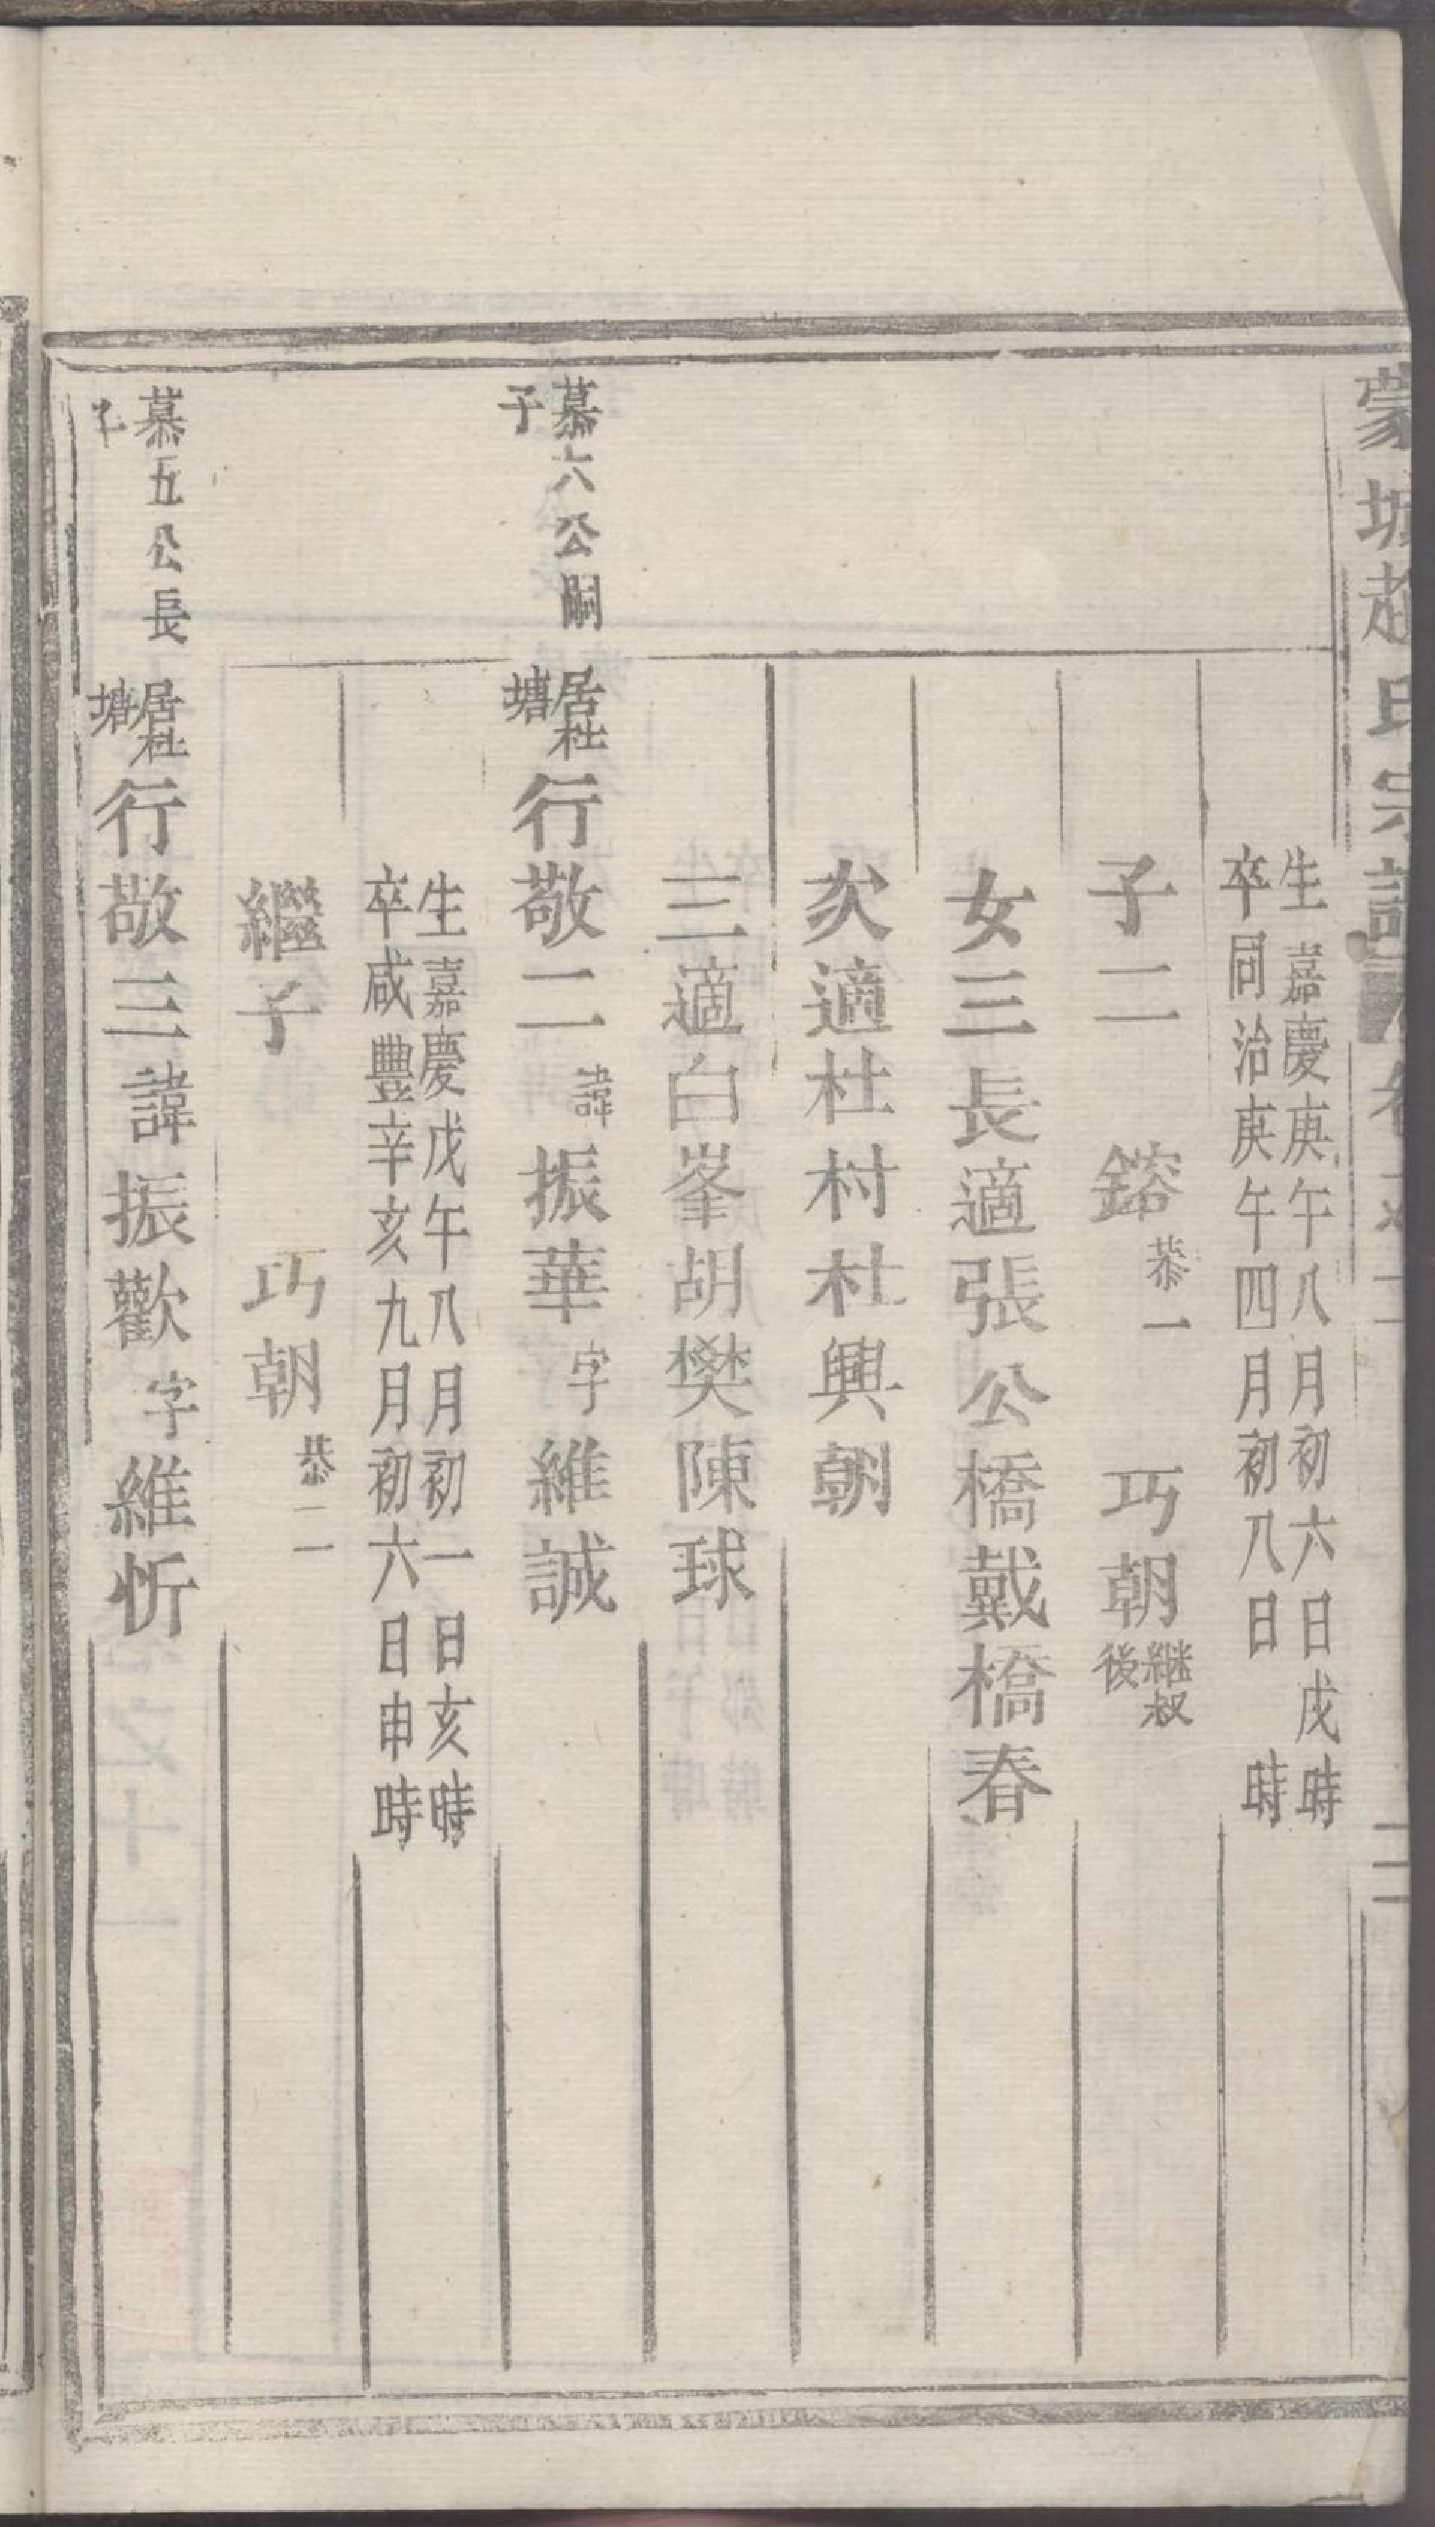 蒙城趙氏宗譜 卷之十二 二
生嘉慶庚午八月初六日戌時
卒同治庚午四月初八日 時
子二 鎔恭一 巧朝繼叔後
女三長適張公橋戴橋春
次適杜村杜興朝
三適白峯胡樊陳球
慕六公嗣子 居杜塘 行敬二諱振華字維誠
生嘉慶戊午八月初一日亥時
卒咸豐辛亥九月初六日申時
繼子 巧朝恭二
慕五公長子 居杜塘 行敬三諱振歡字維忻